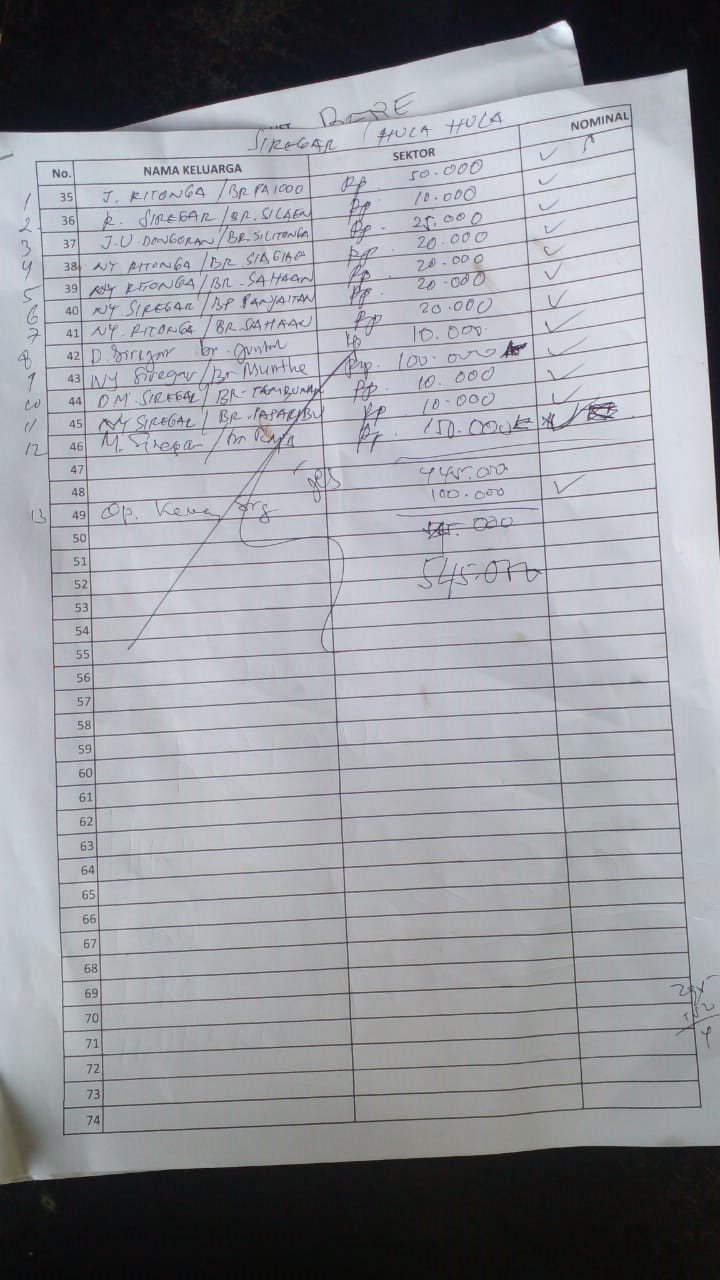 BERE
SIREGAR / HULA HULA
No. NAMA KELUARGA SEKTOR NOMINAL
1 35 J. RITONGA / BR PA1000 Rp 50.000 ✓
2. 36 R. SIREGAR / BR. SILAEN Rp 10.000 ✓
3 37 J.U. DONGORAN / BR. SILITONGA Rp 25.000 ✓
4 38 NY RITONGA / BR. SIAGIAN Rp. 20.000 ✓
5 39 NY RITONGA / BR. SAHAAN Rp 20.000 ✓
6 40 NY. SIREGAR / BR PANJAITAN Rp. 20.000 ✓
7 41 NY. RITONGA / BR. SAHAAN Rp 20.000 ✓
8 42 D. Siregar br. Gultom Rp 10.000 ✓
9 43 NY Siregar / Br Munthe Rp. 100.000 ✓
10 44 D.M. SIREGAR / BR. TAMBUNAN Rp. 10.000 ✓
11 45 NY SIREGAR / BR. PASARIBU Rp 10.000 ✓
12 46 M. Siregar / Br Rp. 150.000 ✓
47 445.000
48 100.000 ✓
13 49 Op.
50 .000
51
52 545.000
53
54
55
56
57
58
59
60
61
62
63
64
65
66
67
68
69
70
71
72
73
74